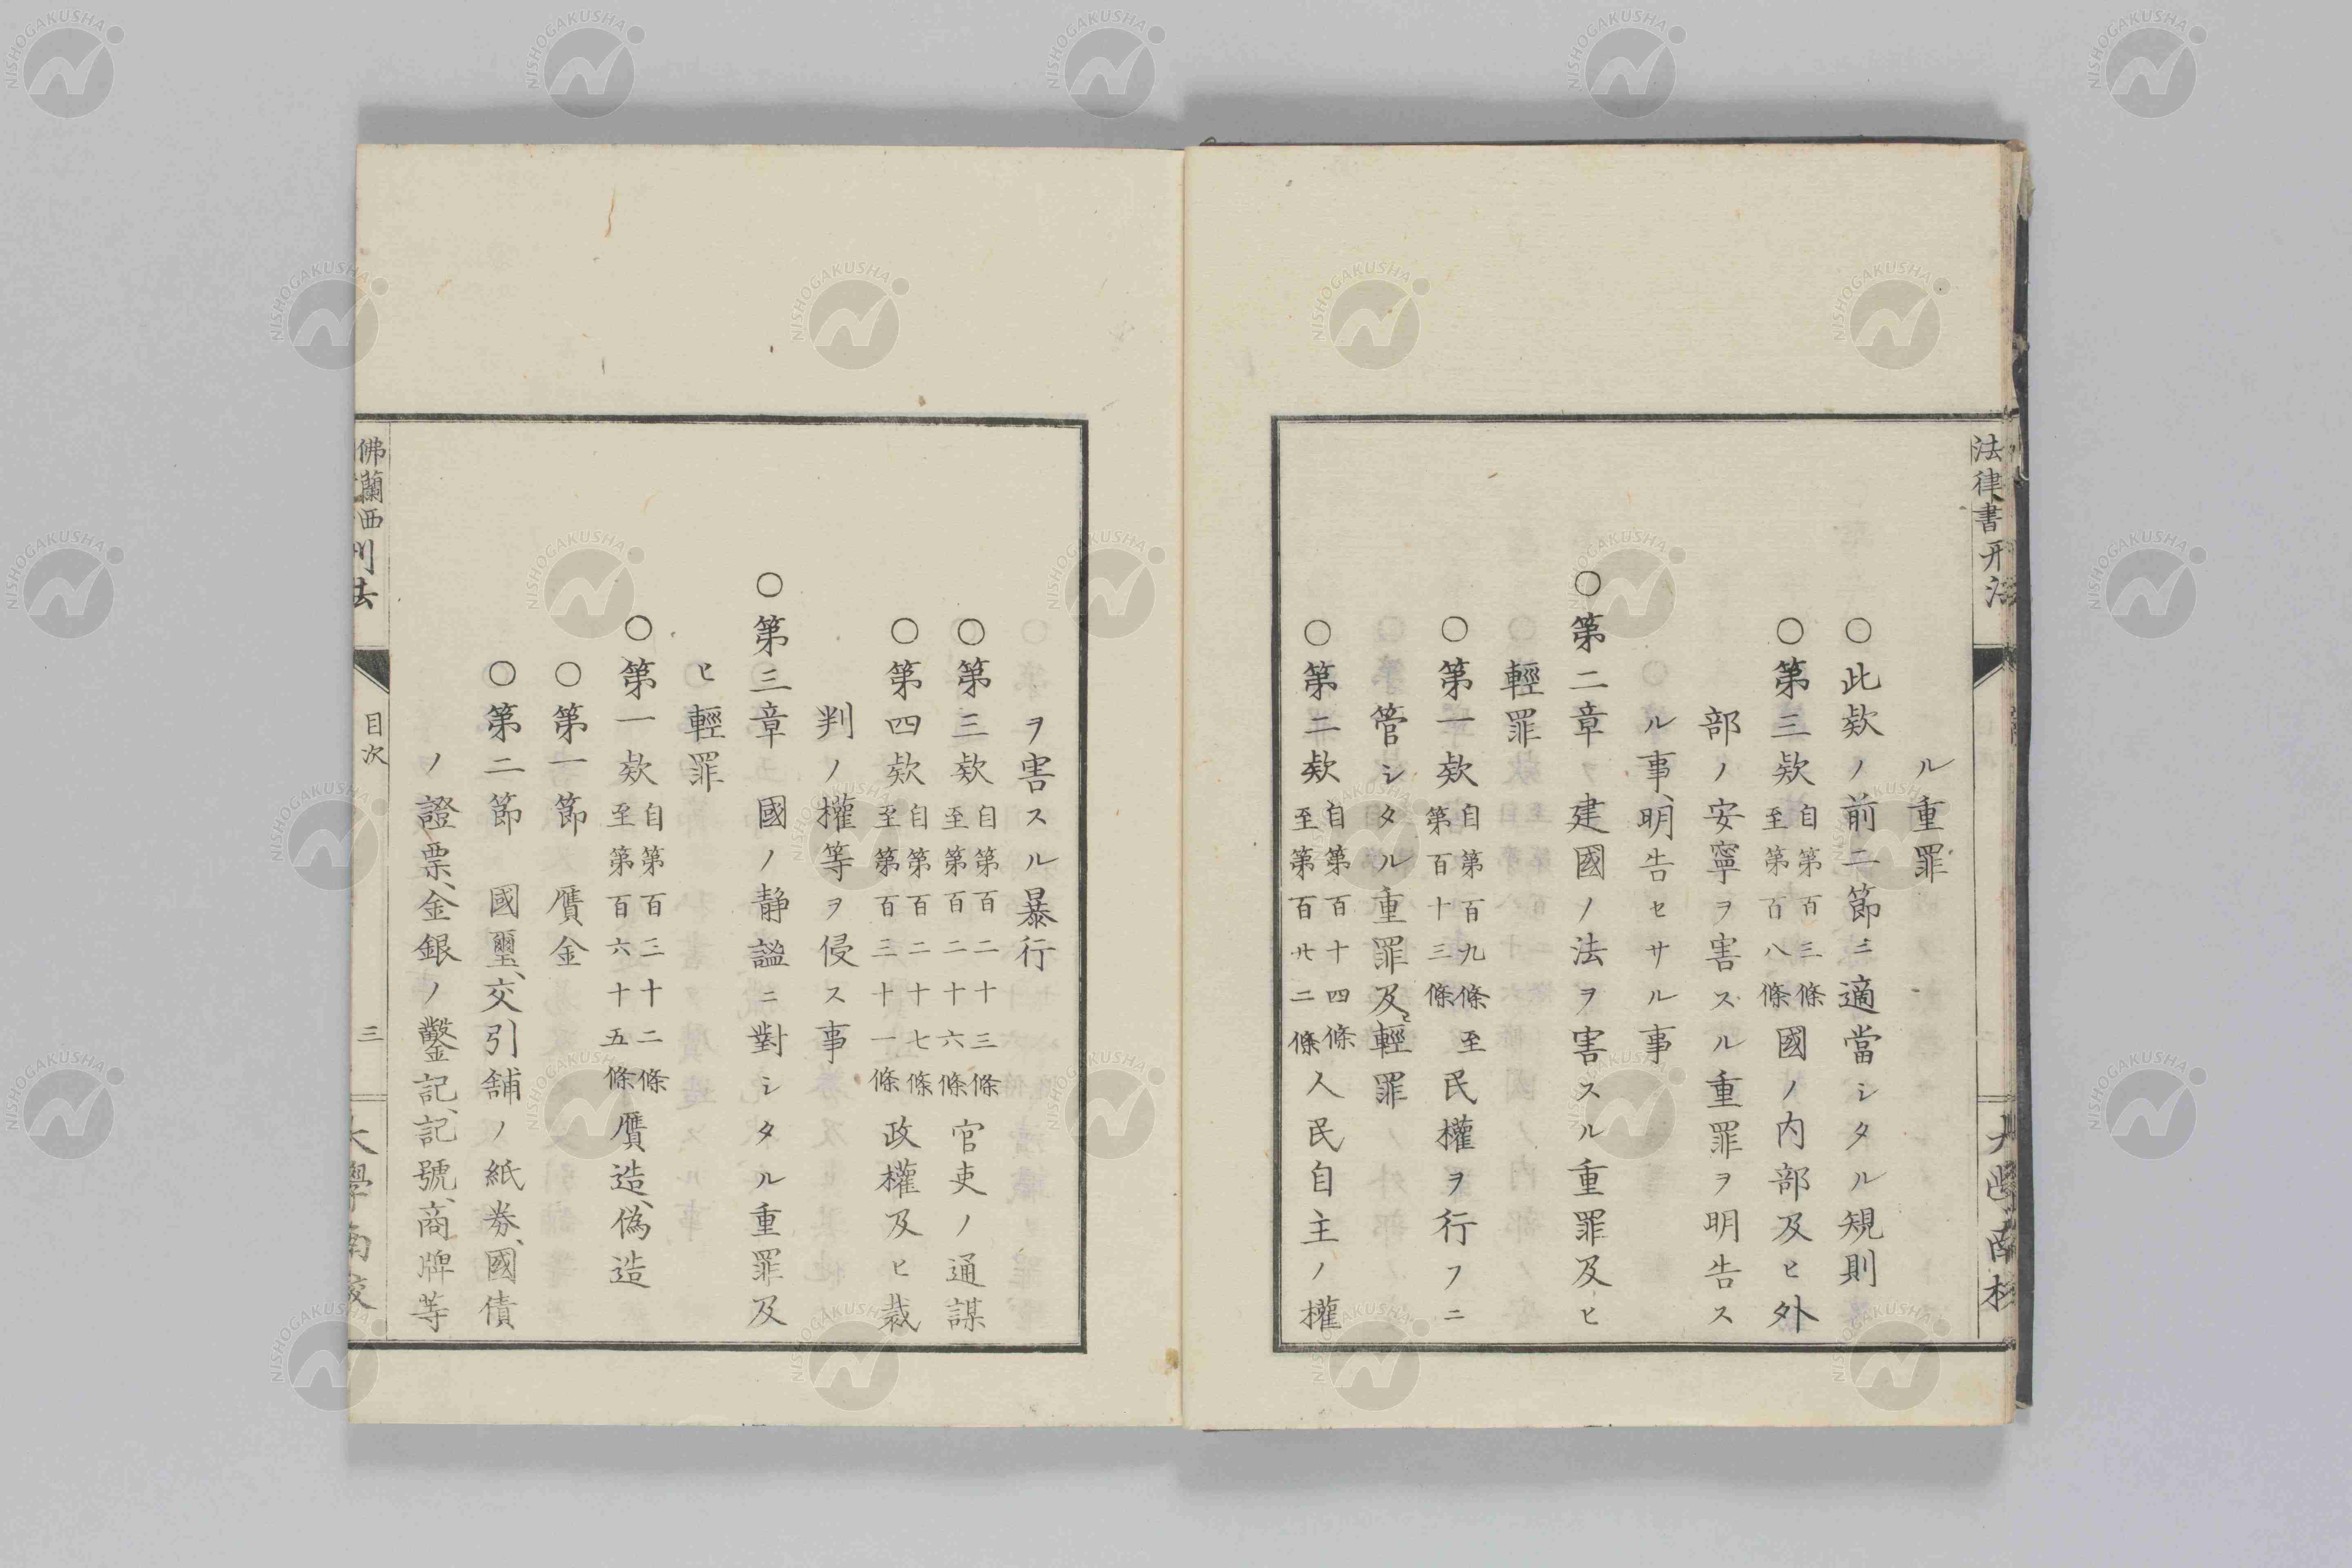 法律書刑法
ル重罪
○此欵ノ前二節ニ適當シタル規則
○第三欵自第百三條至第百八條國ノ内部及ヒ外
部ノ安寧ヲ害スル重罪ヲ明告ス
ル事、明告セサル事
○第二章建國ノ法ヲ害スル重罪及ヒ
輕罪
○第一欵自第百九條至第百十三條民權ヲ行フニ
管シタル重罪及ヒ輕罪
○第二欵自第百十四條至第百廿二條人民自主ノ權
ヲ害スル暴行
○第三欵自第百二十三條至第百二十六條官吏ノ通謀
○第四欵自第百二十七條至第百三十一條政權及ヒ裁
判ノ權等ヲ侵ス事
○第三章國ノ静謐ニ對シタル重罪及
ヒ輕罪
○第一欵自第百三十二條至第百六十五條贋造、偽造
○第一節 贋金
○第二節 國璽、交引舗ノ紙券、國債
ノ證票、金銀ノ鑿記、記號、商牌等
佛蘭西刑法
目次
三
大學南校
NISHOGAKUSHA